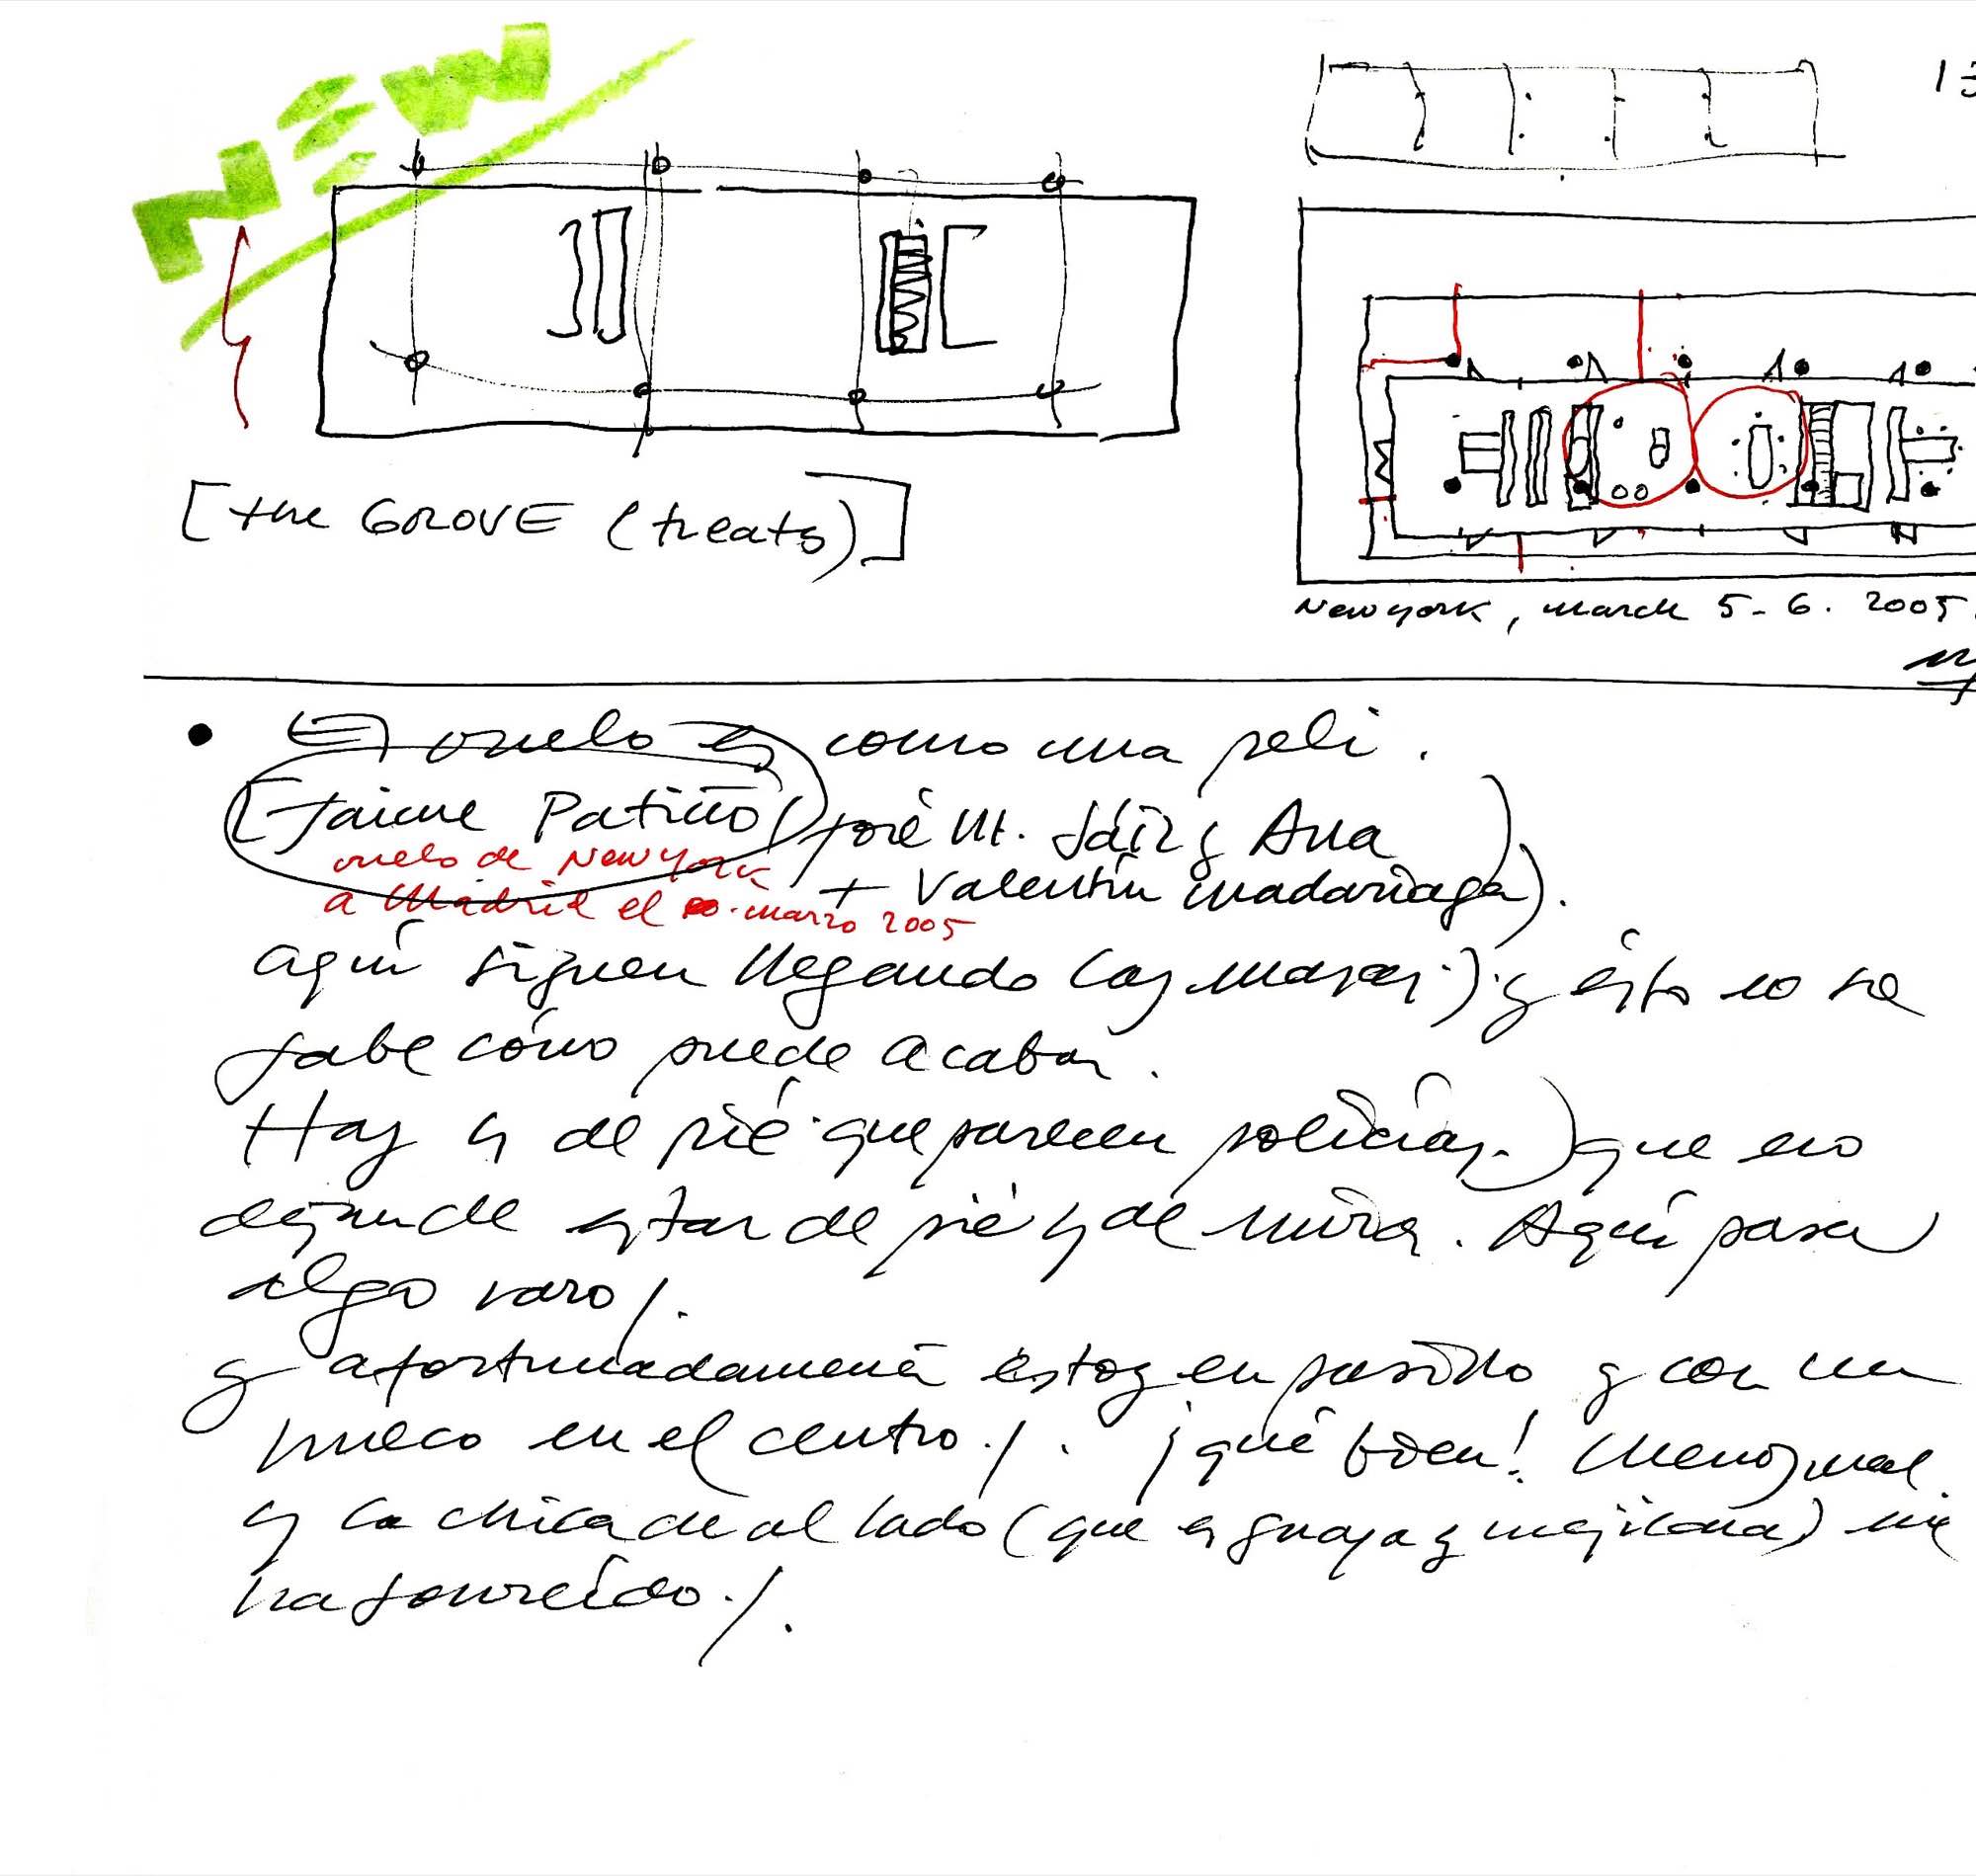 NEW
13
[the GROVE (treats)]
New york, march 5-6. 2005.
• El vuelo es como una peli.
[Jaime Patiño (José M. Sáiz y Ana
vuelo de New York
+ Valentín Madariaga).
a Madrid el marzo 2005
aquí siguen llegando las masas.) y ésto no se
sabe cómo puede acabar.
Hay 4 de pié que parecen policías.) que no
dejan de estar de pié y de mirar. Aquí pasa
algo raro/.
y afortunadamente estoy en pasillo y con un
hueco en el centro./. ¡qué bien! Menos mal.
y la chica de al lado (que es guapa y mejicana) me
ha sonreído./.